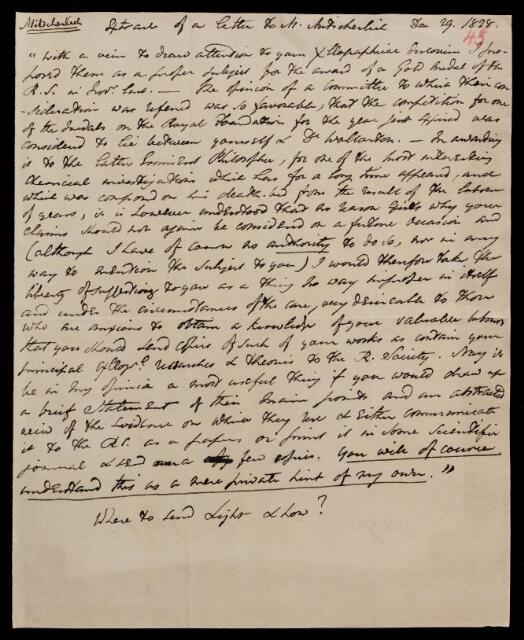 Mitscherlich Extract of a letter to M. Mitscherlich Dec 29. 1828.
48
"With a view to draw attention to your Xllographical Discoveries I pro-
posed them as a proper subject for the award of a Gold Medal of the
R.S. in Novr. last. — The opinion of a Committee to which their con-
-sideration was referred was so favorable, that the competition for one
of the Medals on the Royal Foundation for the year just expired was
considered to lie between yourself & Dr Wollaston. — In awarding
it to the latter Eminent Philosopher, for one of the most interesting
Chemical investigations which has for a long time appeared, and
which was composed on his death-bed from the result of the labour
of years, it is however understood that no reason exists why your
claims should not again be considered on a future occasion and
(although I have of course no authority to do so, nor in any
way to mention the subject to you) I would therefore take the
liberty of suggesting to you as a thing no way improper in itself
and under the circumstances of the case, very desirable to those
who are anxious to obtain a knowledge of your valuable labours
that you should send copies of such of your works as contain your
principal Xllogrl. researches & theories to the R. Society. Nay it
be in my opinion a most useful thing if you would draw up
a brief statement of their main points and an abstracted
view of the evidence on which they rest & either communicate
it to the R.S. as a paper or print it in some Scientific
journal & send over a few copies. You will of course
understand this as a mere private hint of my own."
Where to send Light & how?